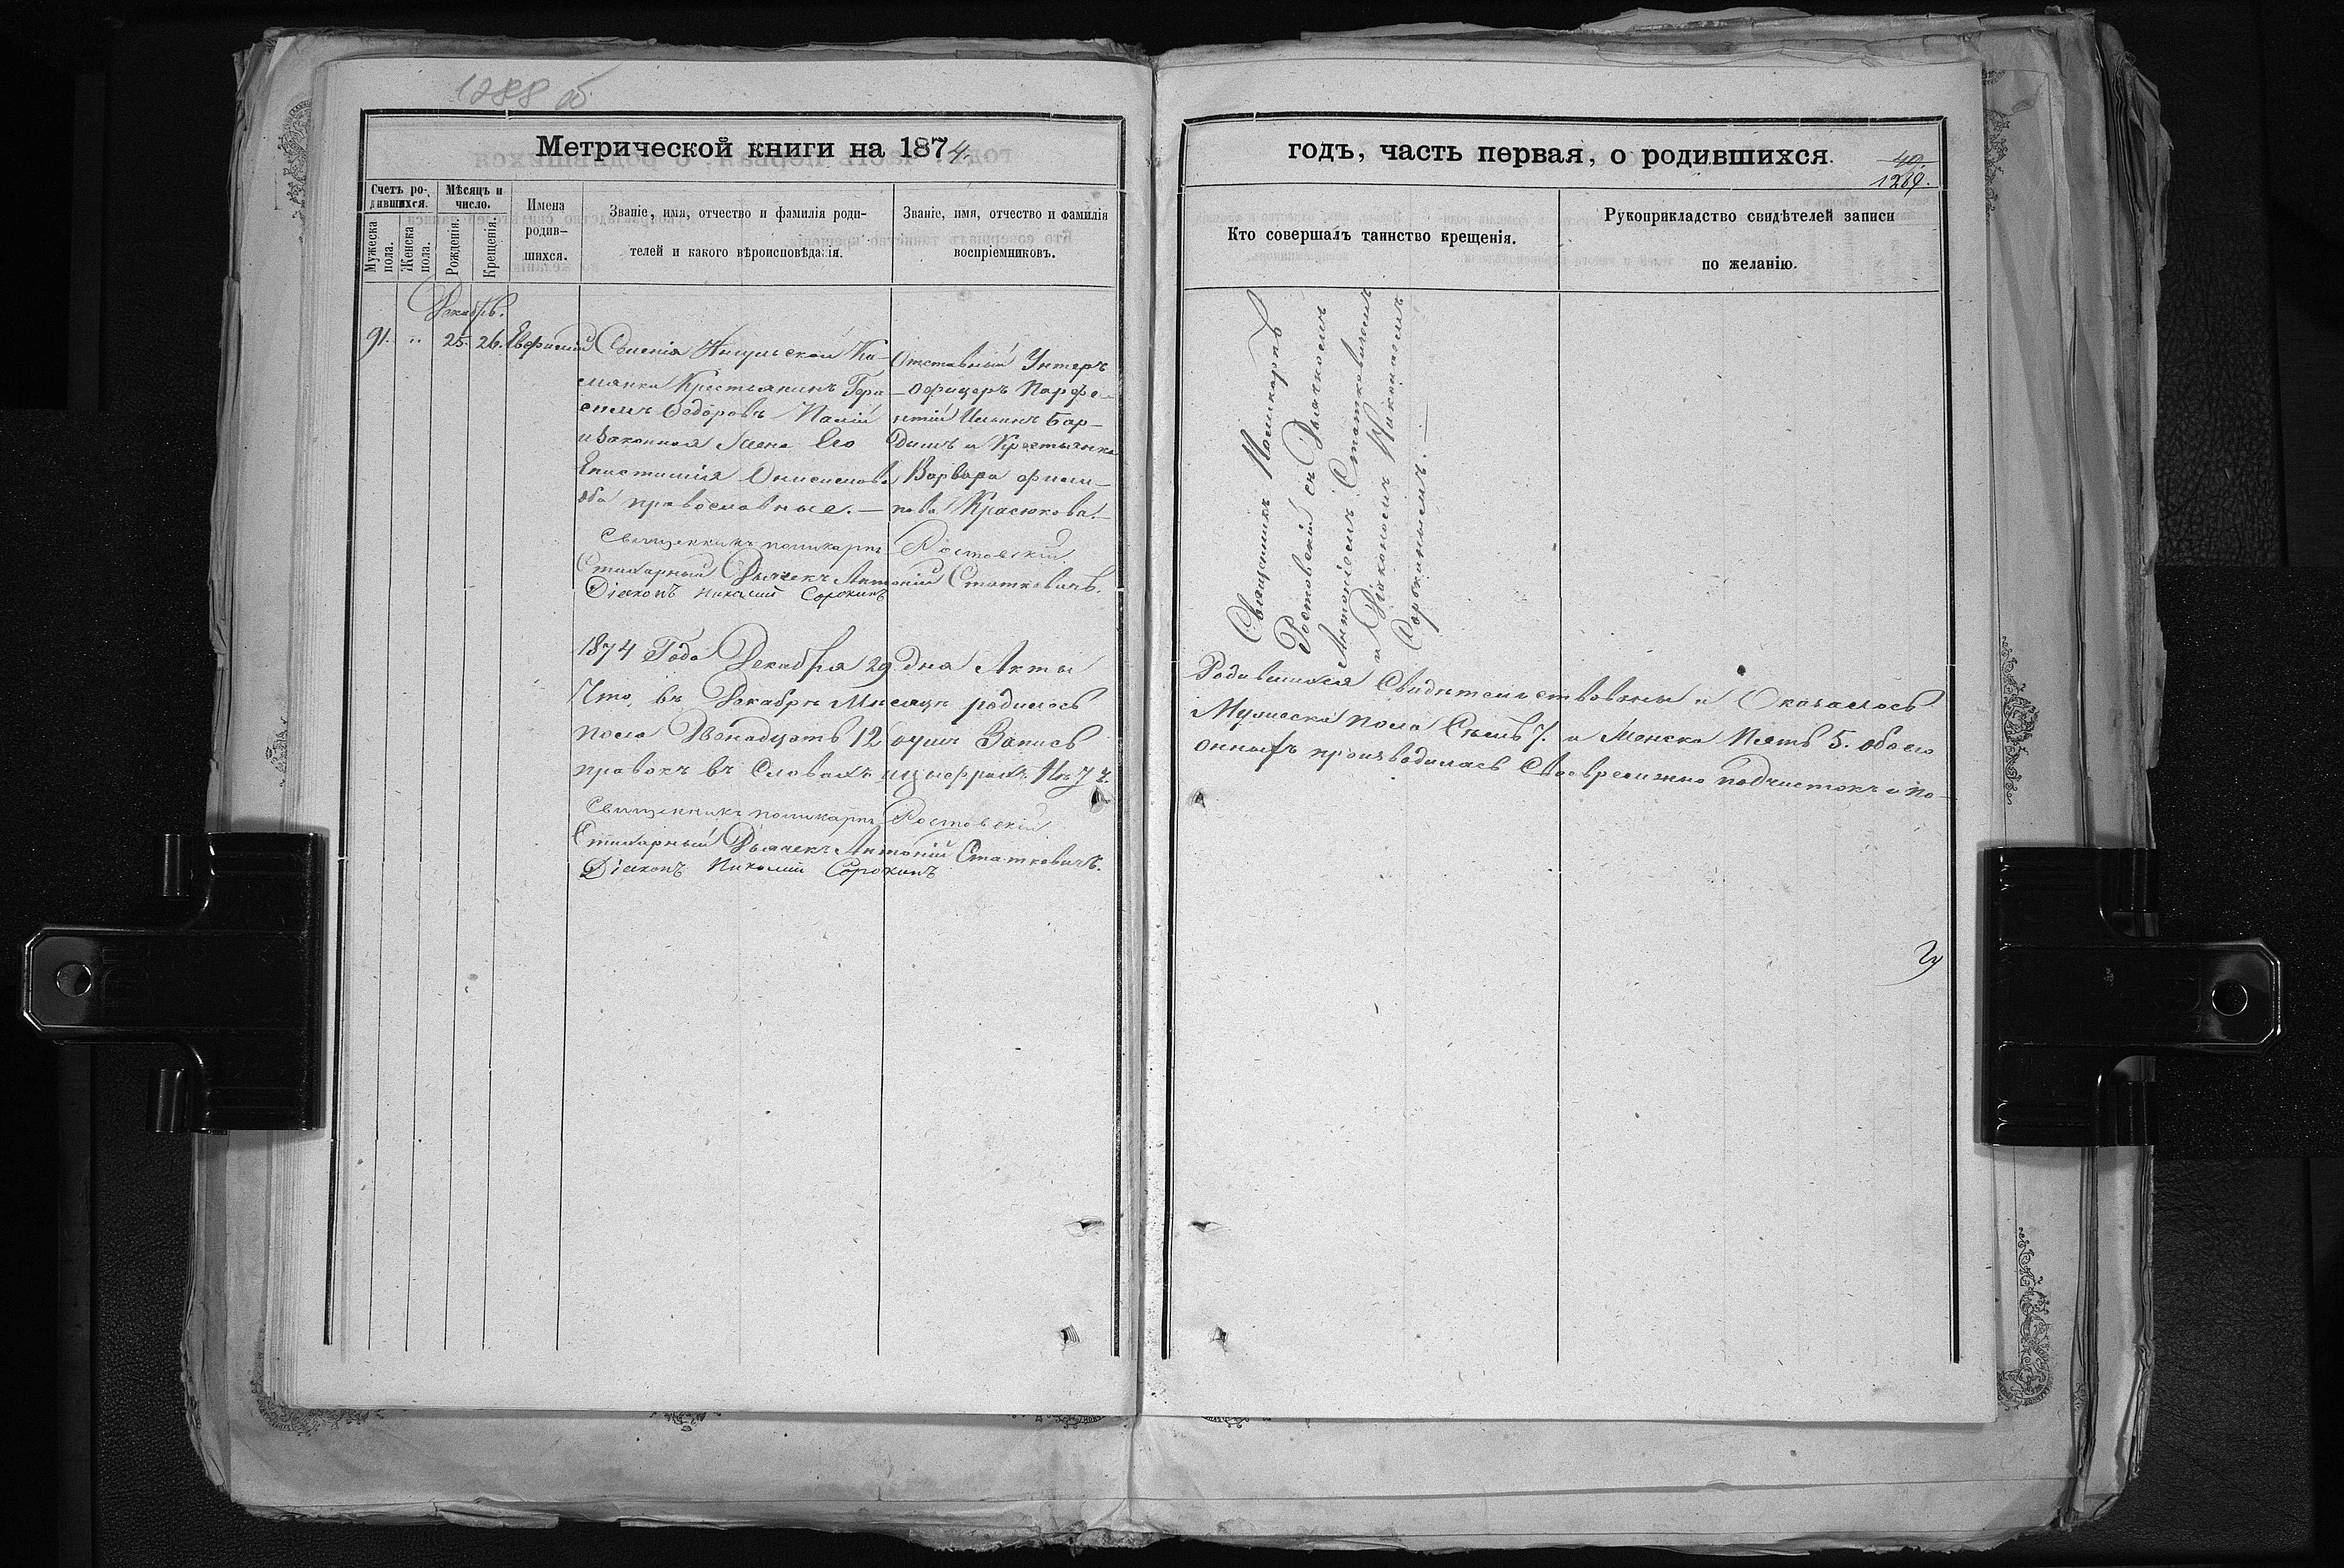 1288 об
Метрической книги на 1874
Счетъ ро-
дившихся.
Мѣсяцъ и
число.
Мужеска
пола.
Женска
пола.
Рожденія.
Крещенія.
Имена
родив-
шихся.
Званіе, имя, отчество и фамилія роди-
телей и какого вѣроисповѣданія.
Званіе, имя, отчество и фамилія
воспріемниковъ.
Декабрь.
91. " 25. 26. Евфимій
Селенія
мянки Крестьянинъ Гера
симъ Федоровъ Палій
и Законная Жена Его
Епистимія Онисимова
оба православные. —
Отставный Унтеръ
— офицеръ Парфе-
нтій Ильинъ Бар-
дышъ и Крестьянка
Варвара Фили-
пова Красюкова. —
Священникъ Поликарпъ Ростовскій
Стихарный Дьячекъ Антоній Статкевичъ.
Діаконъ Николай Сорокинъ
1874 Года Декабря 29 дня Акты
Что, въ Декабрѣ Мѣсяцѣ родилось
пола Двенадцать 12 душъ Запись
правокъ въ Словахъ и цыфрахъ
Священникъ Поликарпъ Ростовскій
Стихарный Дьячекъ Антоній Статкевичъ.
Діаконъ Николай Сорокинъ
годъ, часть первая, о родившихся.
40.
1289.
Кто совершалъ таинство крещенія.
Рукоприкладство свидѣтелей записи
по желанію.
Священникъ Поликарпъ
Ростовскій съ Дьячкомъ
Антоніемъ Статкевичемъ
и Діакономъ Николаемъ
Сорокинымъ. —
Родившихся Свидѣтельствованы и Оказалось
Мужеска пола Семь 7. и Женска Пять 5. обоего
оныхъ производилась Своевремѣнно подчистокъ и по-